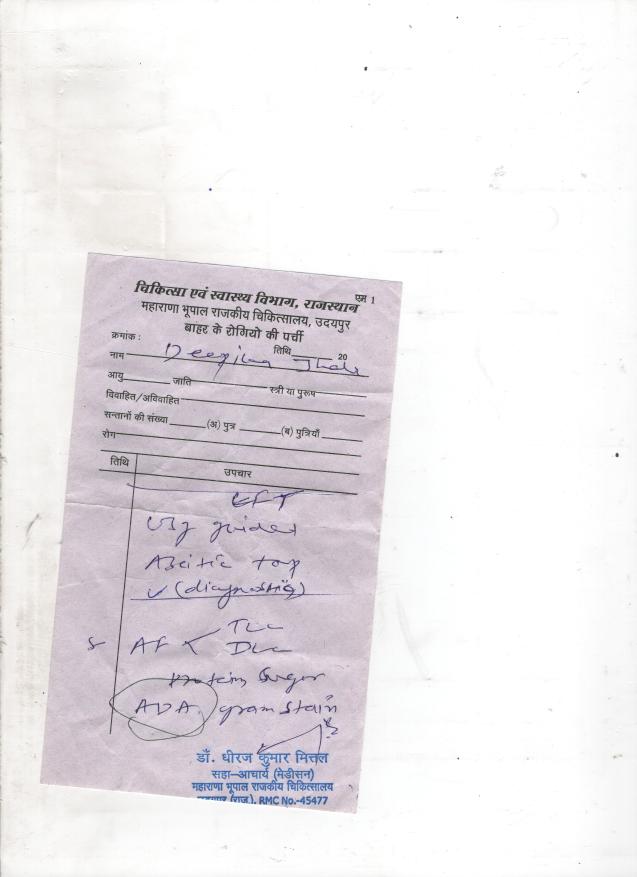 चिकित्सा एवं स्वास्थ्य विभाग, राजस्थान
एम 1
महाराणा भूपाल राजकीय चिकित्सालय, उदयपुर
बाहर के रोगियो की पर्ची
क्रमांक : तिथि 20
नाम
आयु जाति स्त्री या पुरूष
विवाहित/अविवाहित
सन्तानों की संख्या (अ) पुत्र (ब) पुत्रियाँ
रोग
तिथि उपचार
LFT
USG guided
Ascitic tap
(diagnostic)
TLC
AF < DLC
Protein, Sugar
ADA, gram stain
डॉ. धीरज कुमार मित्तल
सहा-आचार्य (मेडीसन)
महाराणा भूपाल राजकीय चिकित्सालय
(राज.), RMC No.-45477